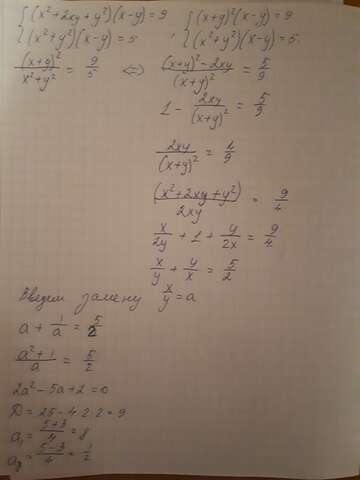 { (x² + 2xy + y²)(x-y) = 9    { (x+y)²(x-y) = 9
{ (x² + y²)(x-y) = 5    , { (x² + y²)(x-y) = 5.
(x+y)² / (x² + y²) = 9/5 <=> ((x+y)² - 2xy) / (x+y)² = 5/9
1 - 2xy / (x+y)² = 5/9
2xy / (x+y)² = 4/9
(x² + 2xy + y²) / 2xy = 9/4
x/2y + 1 + y/2x = 9/4
x/y + y/x = 5/2
Введем замену x/y = a
a + 1/a = 5/2
(a² + 1) / a = 5/2
2a² - 5a + 2 = 0
D = 25 - 4·2·2 = 9
a₁ = (5+3)/4 = 8
a₂ = (5-3)/4 = 1/2